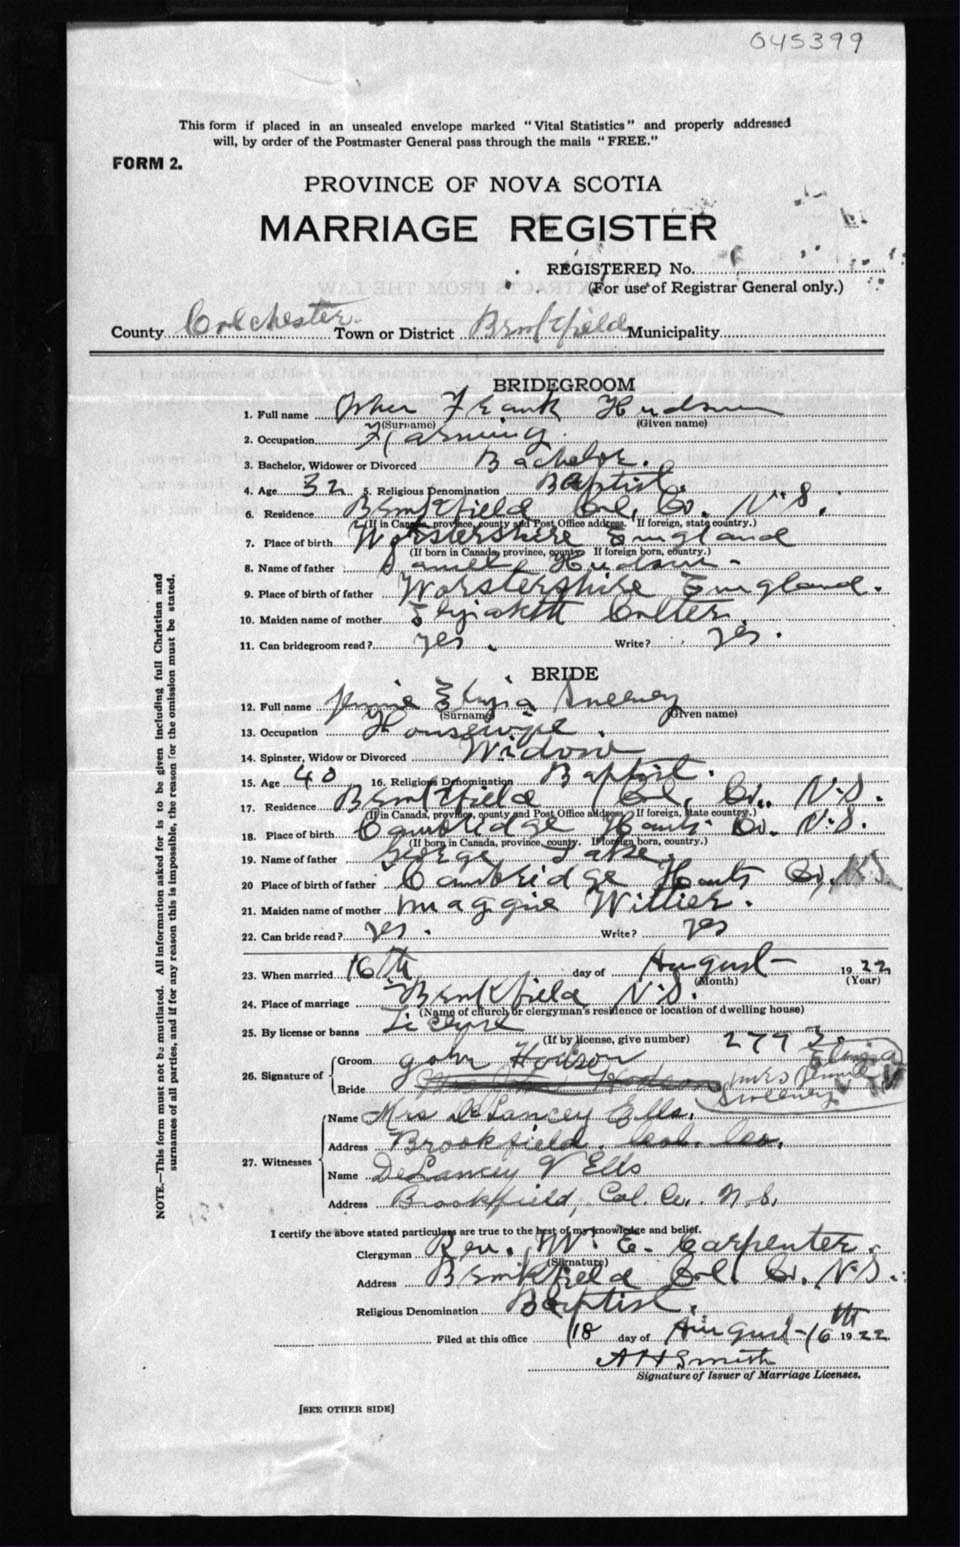 045399
This form if placed in an unsealed envelope marked "Vital Statistics" and properly addressed
will, by order of the Postmaster General pass through the mails "FREE."
FORM 2.
PROVINCE OF NOVA SCOTIA
MARRIAGE REGISTER
REGISTERED No.
(For use of Registrar General only.)
County Colchester Town or District Brookfield Municipality
BRIDEGROOM
1. Full name Frank Hudson
(Surname) (Given name)
2. Occupation Farming.
3. Bachelor, Widower or Divorced Bachelor.
4. Age 32 5. Religious Denomination Baptist.
6. Residence Brookfield Col. Co. N.S.
(If in Canada, province, county and Post Office address. If foreign, state country.)
7. Place of birth Worstershire England
(If born in Canada, province, county. If foreign born, country.)
8. Name of father Daniel Hudson
9. Place of birth of father Worstershire England.
10. Maiden name of mother
11. Can bridegroom read? yes. Write? yes.
BRIDE
12. Full name Sweeney
(Surname) (Given name)
13. Occupation Housewife.
14. Spinster, Widow or Divorced Widow
15. Age 40 16. Religious Denomination Baptist.
17. Residence Brookfield Col. Co. N.S.
(If in Canada, province, county and Post Office address. If foreign, state country.)
18. Place of birth Cambridge Hants Co. N.S.
(If born in Canada, province, county. If foreign born, country.)
19. Name of father George Lake.
20 Place of birth of father Cambridge Hants Co. N.S.
21. Maiden name of mother Maggie Willier.
22. Can bride read? yes. Write? yes
23. When married 16th day of August 1922
(Month) (Year)
24. Place of marriage Brookfield N.S.
(Name of church or clergyman's residence or location of dwelling house)
25. By license or banns
(If by license, give number) 2793
26. Signature of
Groom John Hodson
Bride Mrs Sweeney
27. Witnesses
Name Mrs DeLancey Ells.
Address Brookfield. Col. Co.
Name DeLancey V Ells
Address Brookfield, Col. Co. N.S.
I certify the above stated particulars are true to the best of my knowledge and belief.
Clergyman Rev. W. E. Carpenter.
(Signature)
Address Brookfield Col. Co. N.S.
Religious Denomination Baptist.
Filed at this office 18 day of August 16th 1922
A H Smith
Signature of Issuer of Marriage Licenses.
[SEE OTHER SIDE]
NOTE.—This form must not be mutilated. All information asked for is to be given including full Christian and
surnames of all parties, and if for any reason this is impossible, the reason for the omission must be stated.